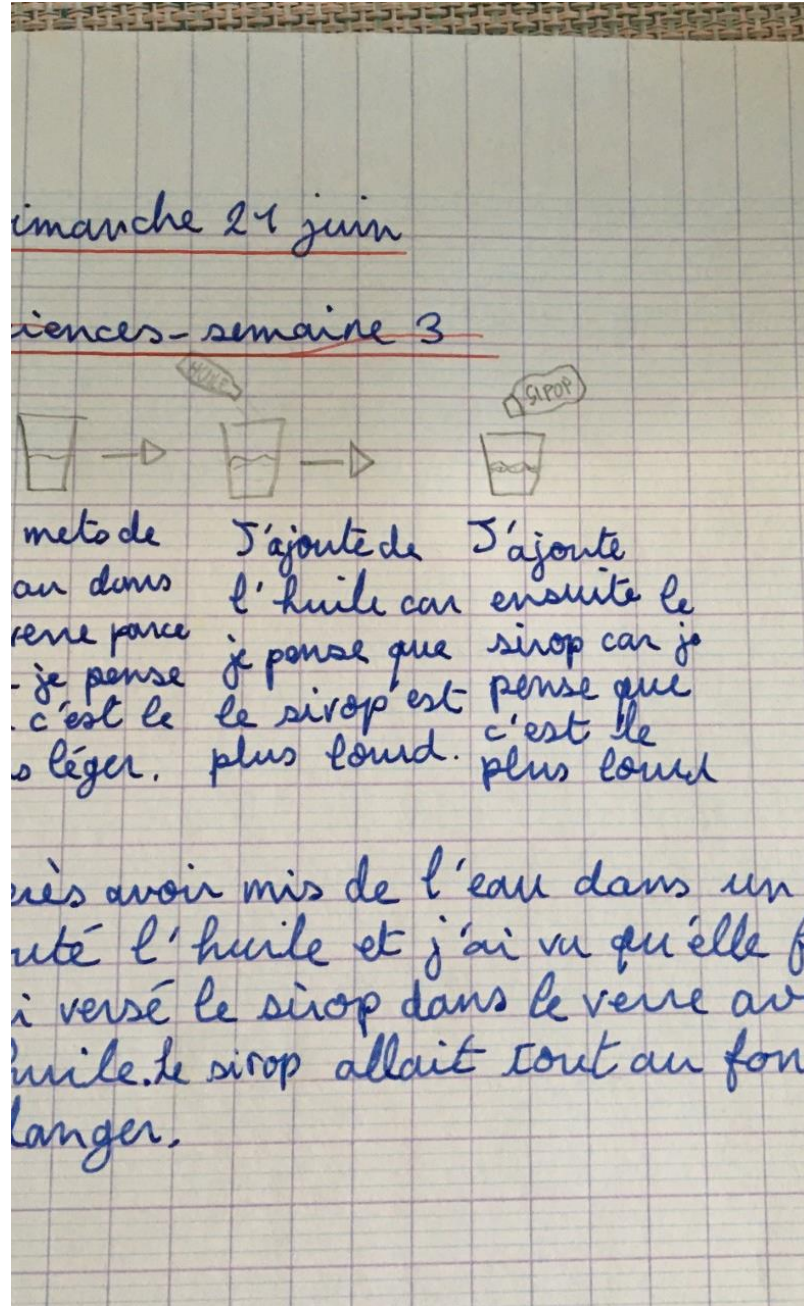 imanche 21 juin
iences - semaine 3
HUILE
SIPOP
mets de
au dans
verre parce
je pense
c'est le
s léger.
J'ajoute de
l'huile car
je pense que
le sirop est
plus lourd.
J'ajoute
ensuite le
sirop car je
pense que
c'est le
plus lourd
rès avoir mis de l'eau dans un
uté l'huile et j'ai vu qu'elle f
i versé le sirop dans le verre av
huile. Le sirop allait tout au fon
langer.